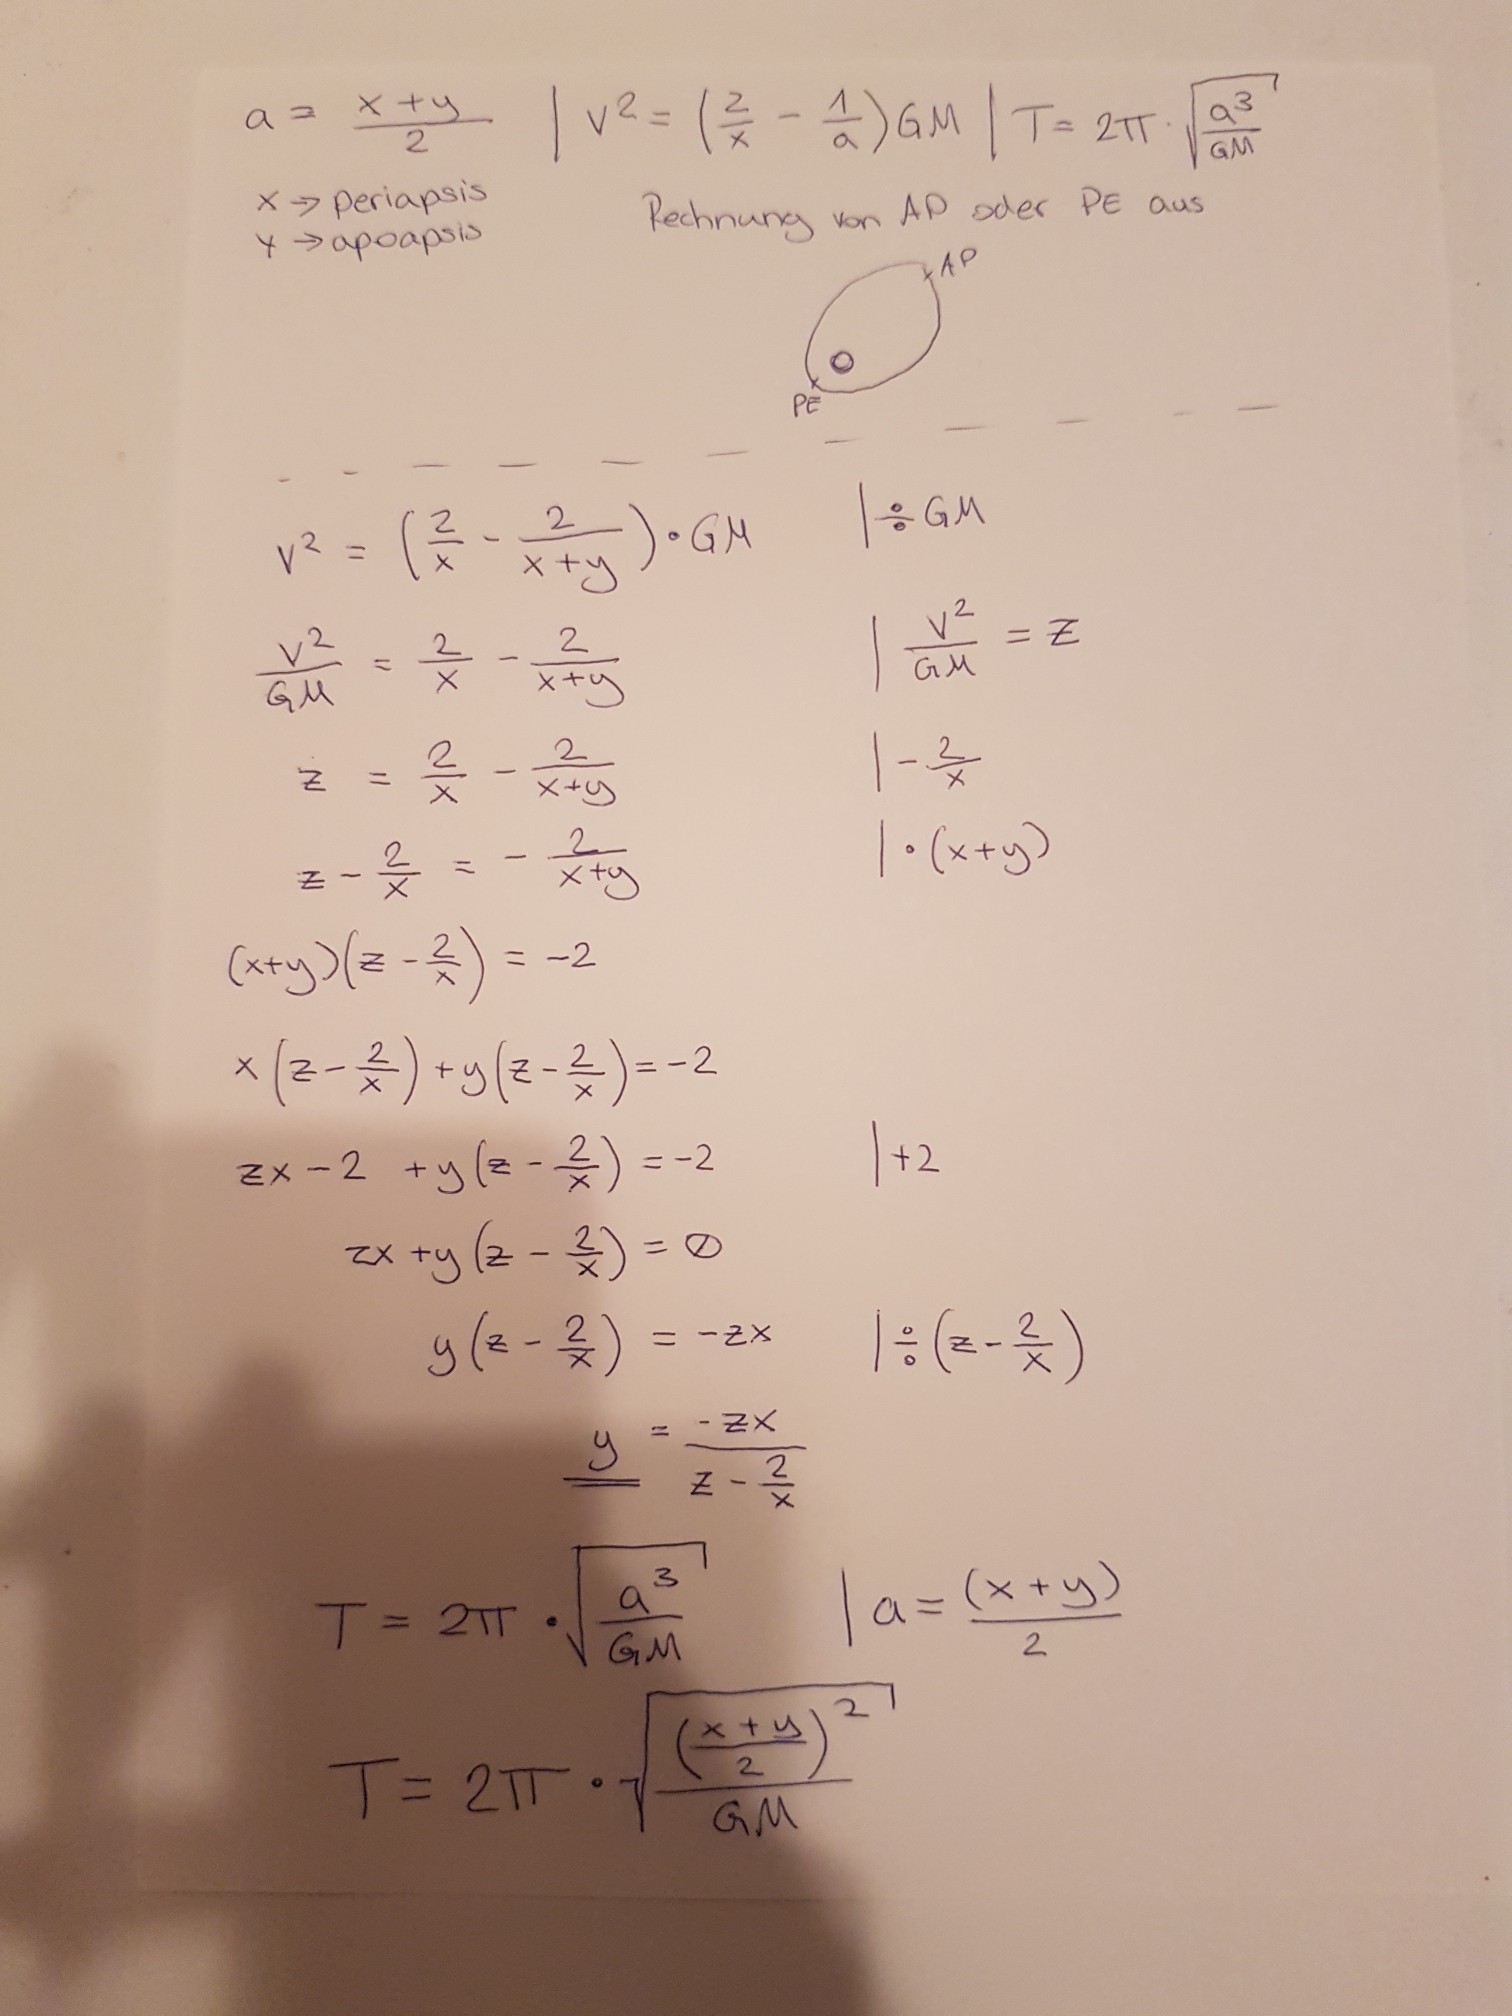 a = (x+y)/2 | v² = (2/x - 1/a)GM | T = 2π · √(a³/GM)
x → periapsis
y → apoapsis
Rechnung von AP oder PE aus
AP
PE
v² = (2/x - 2/(x+y)) · GM | ÷ GM
v²/GM = 2/x - 2/(x+y) | v²/GM = z
z = 2/x - 2/(x+y) | - 2/x
z - 2/x = - 2/(x+y) | · (x+y)
(x+y)(z - 2/x) = -2
x(z - 2/x) + y(z - 2/x) = -2
zx - 2 + y(z - 2/x) = -2 | +2
zx + y(z - 2/x) = 0
y(z - 2/x) = -zx | ÷ (z - 2/x)
y = -zx/(z - 2/x)
T = 2π · √(a³/GM) | a = (x+y)/2
T = 2π · √(((x+y)/2)²/GM)